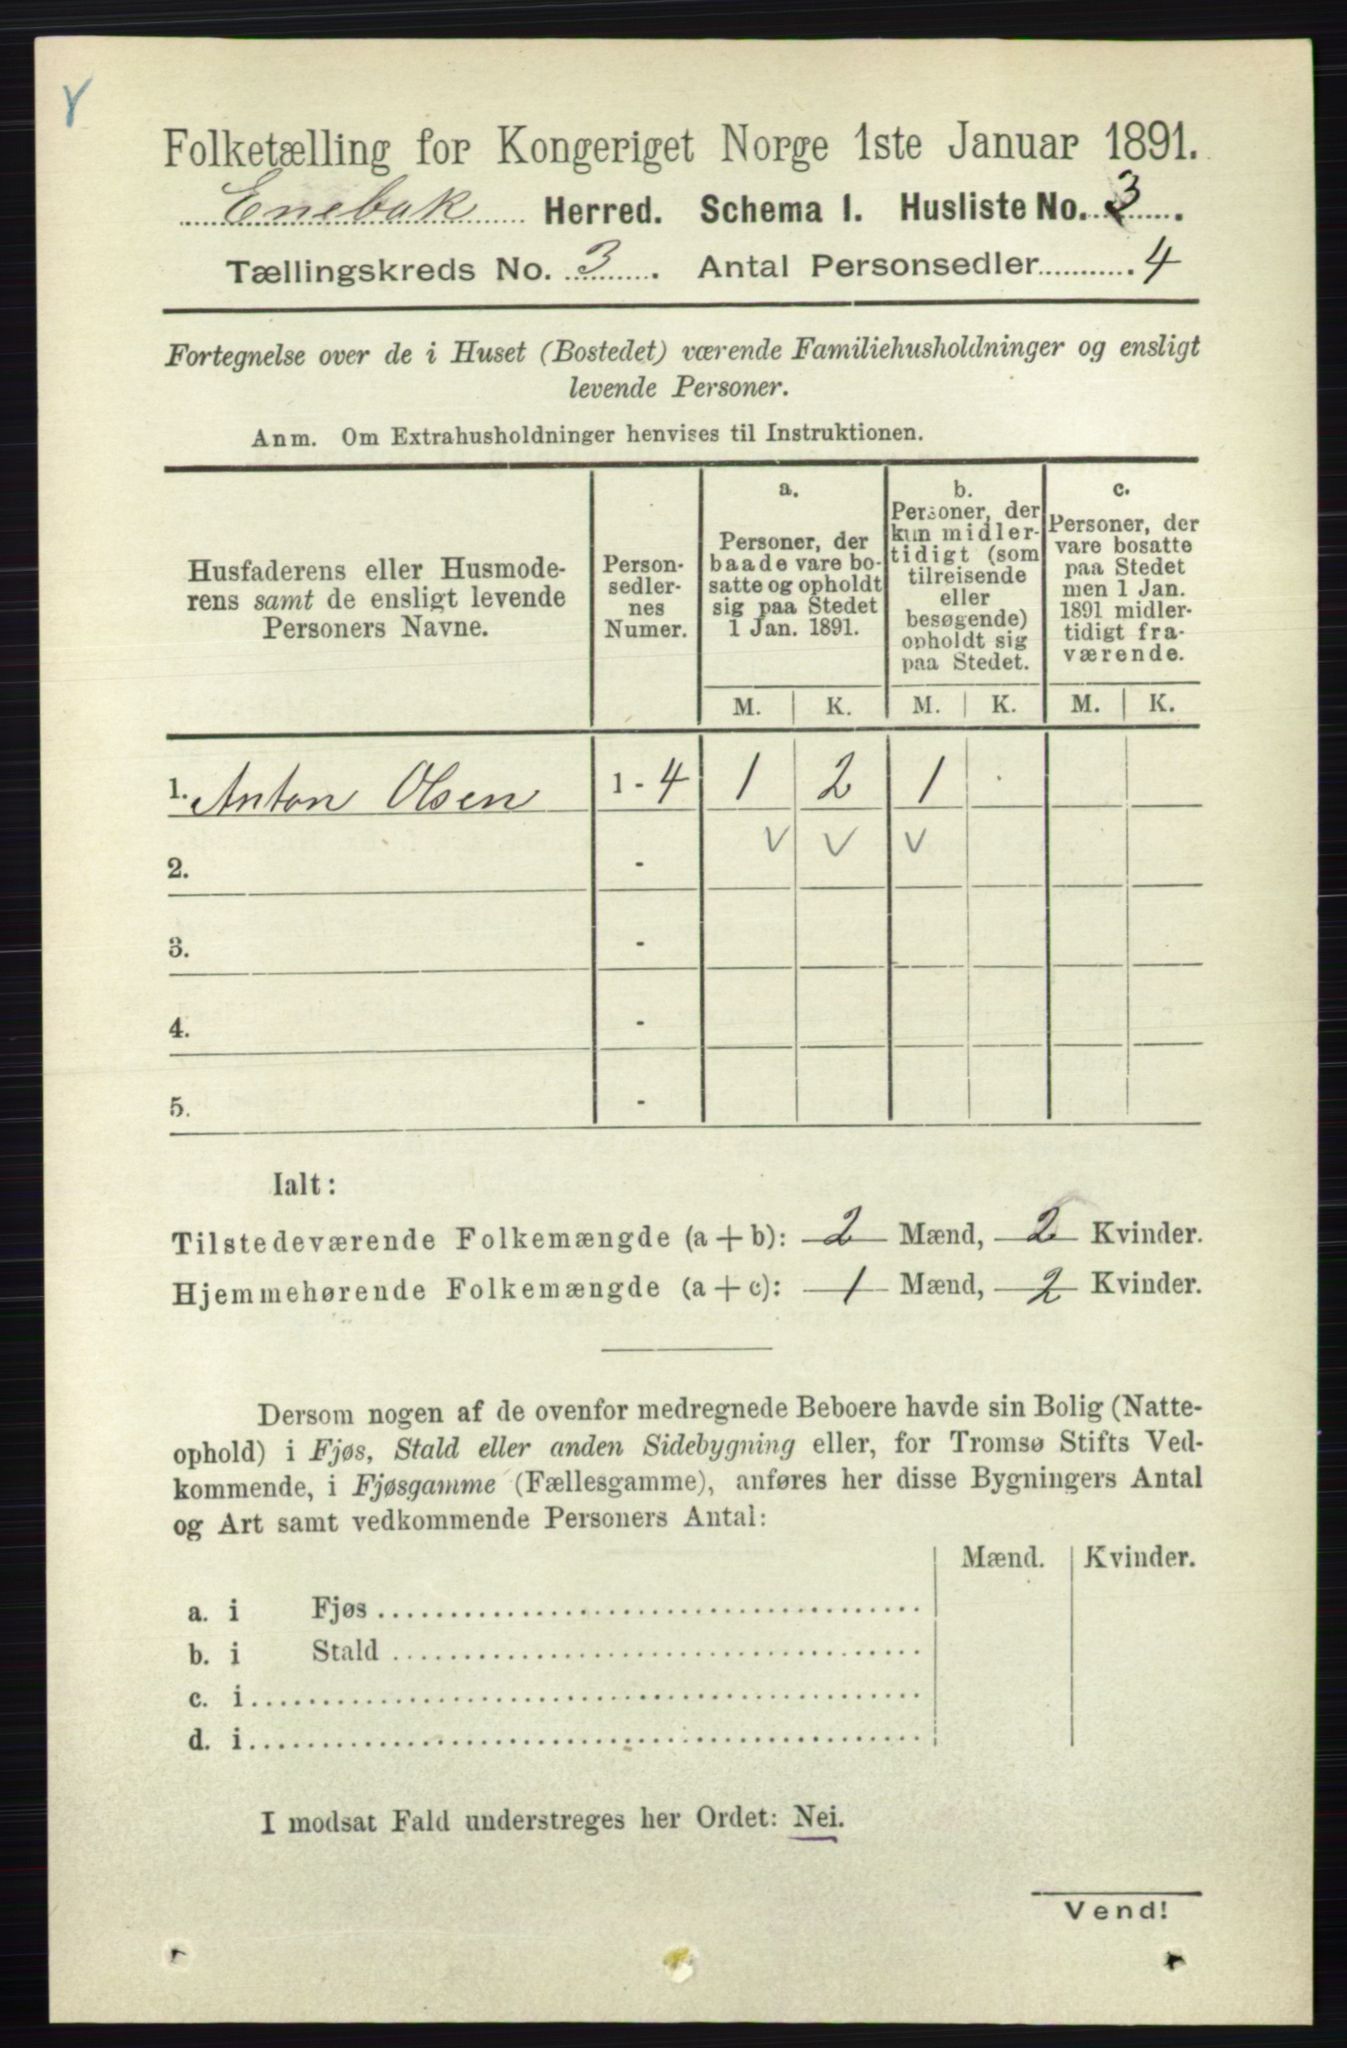 Folketælling for Kongeriget Norge 1ste Januar 1891.
Enebak Herred. Schema I. Husliste No. 3.
Tællingskreds No. 3. Antal Personsedler 4
Fortegnelse over de i Huset (Bostedet) værende Familiehusholdninger og ensligt
levende Personer.
Anm. Om Extrahusholdninger henvises til Instruktionen.
Husfaderens eller Husmode-
rens samt de ensligt levende
Personers Navne.
Person-
sedler-
nes
Numer.
a.
Personer, der
baade vare bo-
satte og opholdt
sig paa Stedet
1 Jan. 1891.
b.
Personer, der
kun midler-
tidigt (som
tilreisende
eller
besøgende)
opholdt sig
paa Stedet.
c.
Personer, der
vare bosatte
paa Stedet
men 1 Jan.
1891 midler-
tidigt fra-
værende.
M. K. M. K. M. K.
1. Anton Olsen 1 - 4 1 2 1 .
2. - v v v
3. -
4. -
5. -
Ialt:
Tilstedeværende Folkemængde (a + b): 2 Mænd, 2 Kvinder.
Hjemmehørende Folkemængde (a + c): 1 Mænd, 2 Kvinder.
Dersom nogen af de ovenfor medregnede Beboere havde sin Bolig (Natte-
ophold) i Fjøs, Stald eller anden Sidebygning eller, for Tromsø Stifts Ved-
kommende, i Fjøsgamme (Fællesgamme), anføres her disse Bygningers Antal
og Art samt vedkommende Personers Antal:
Mænd. Kvinder.
a. i Fjøs
b. i Stald
c. i
d. i
I modsat Fald understreges her Ordet: Nei.
Vend!